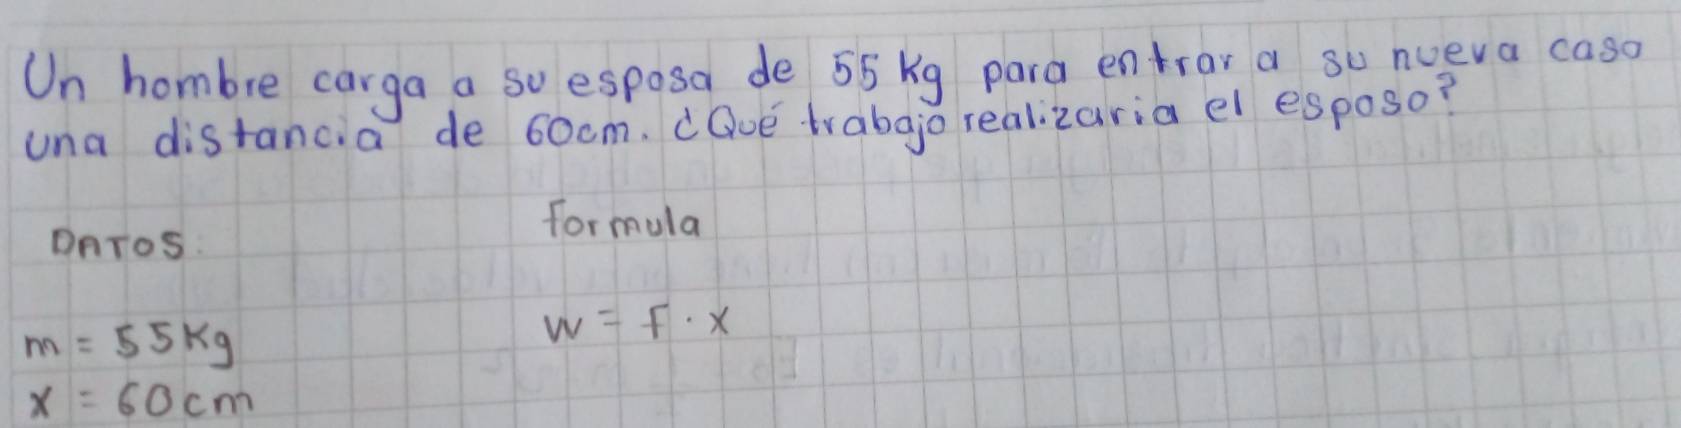 Un hombre carga a su esposa de 55 Kg para entrar a su nueva casa
una distancia de 60cm. ¿Qué trabajo realizaria el esposo?
DATOS: formula
m = 55Kg w = F · x
x = 60cm